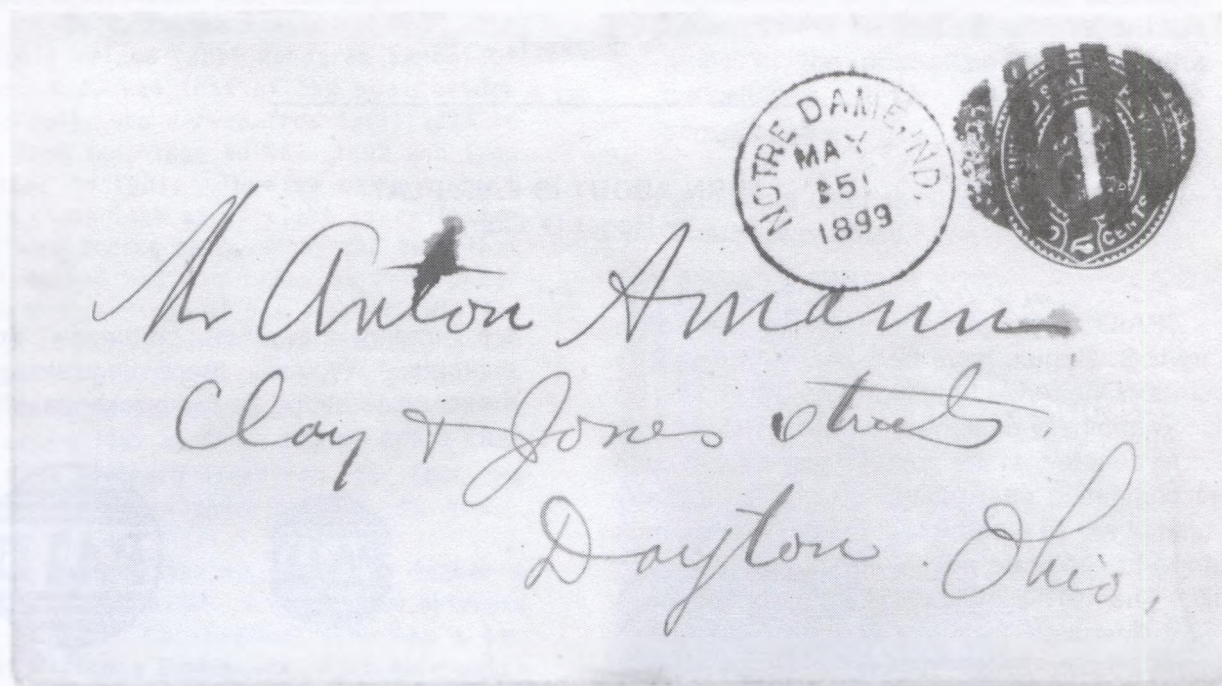 NOTRE DAME, IND.
MAY
1899
2 CENTS
Mr Anton Amann
Clay & Jones streets.
Dayton. Ohio,